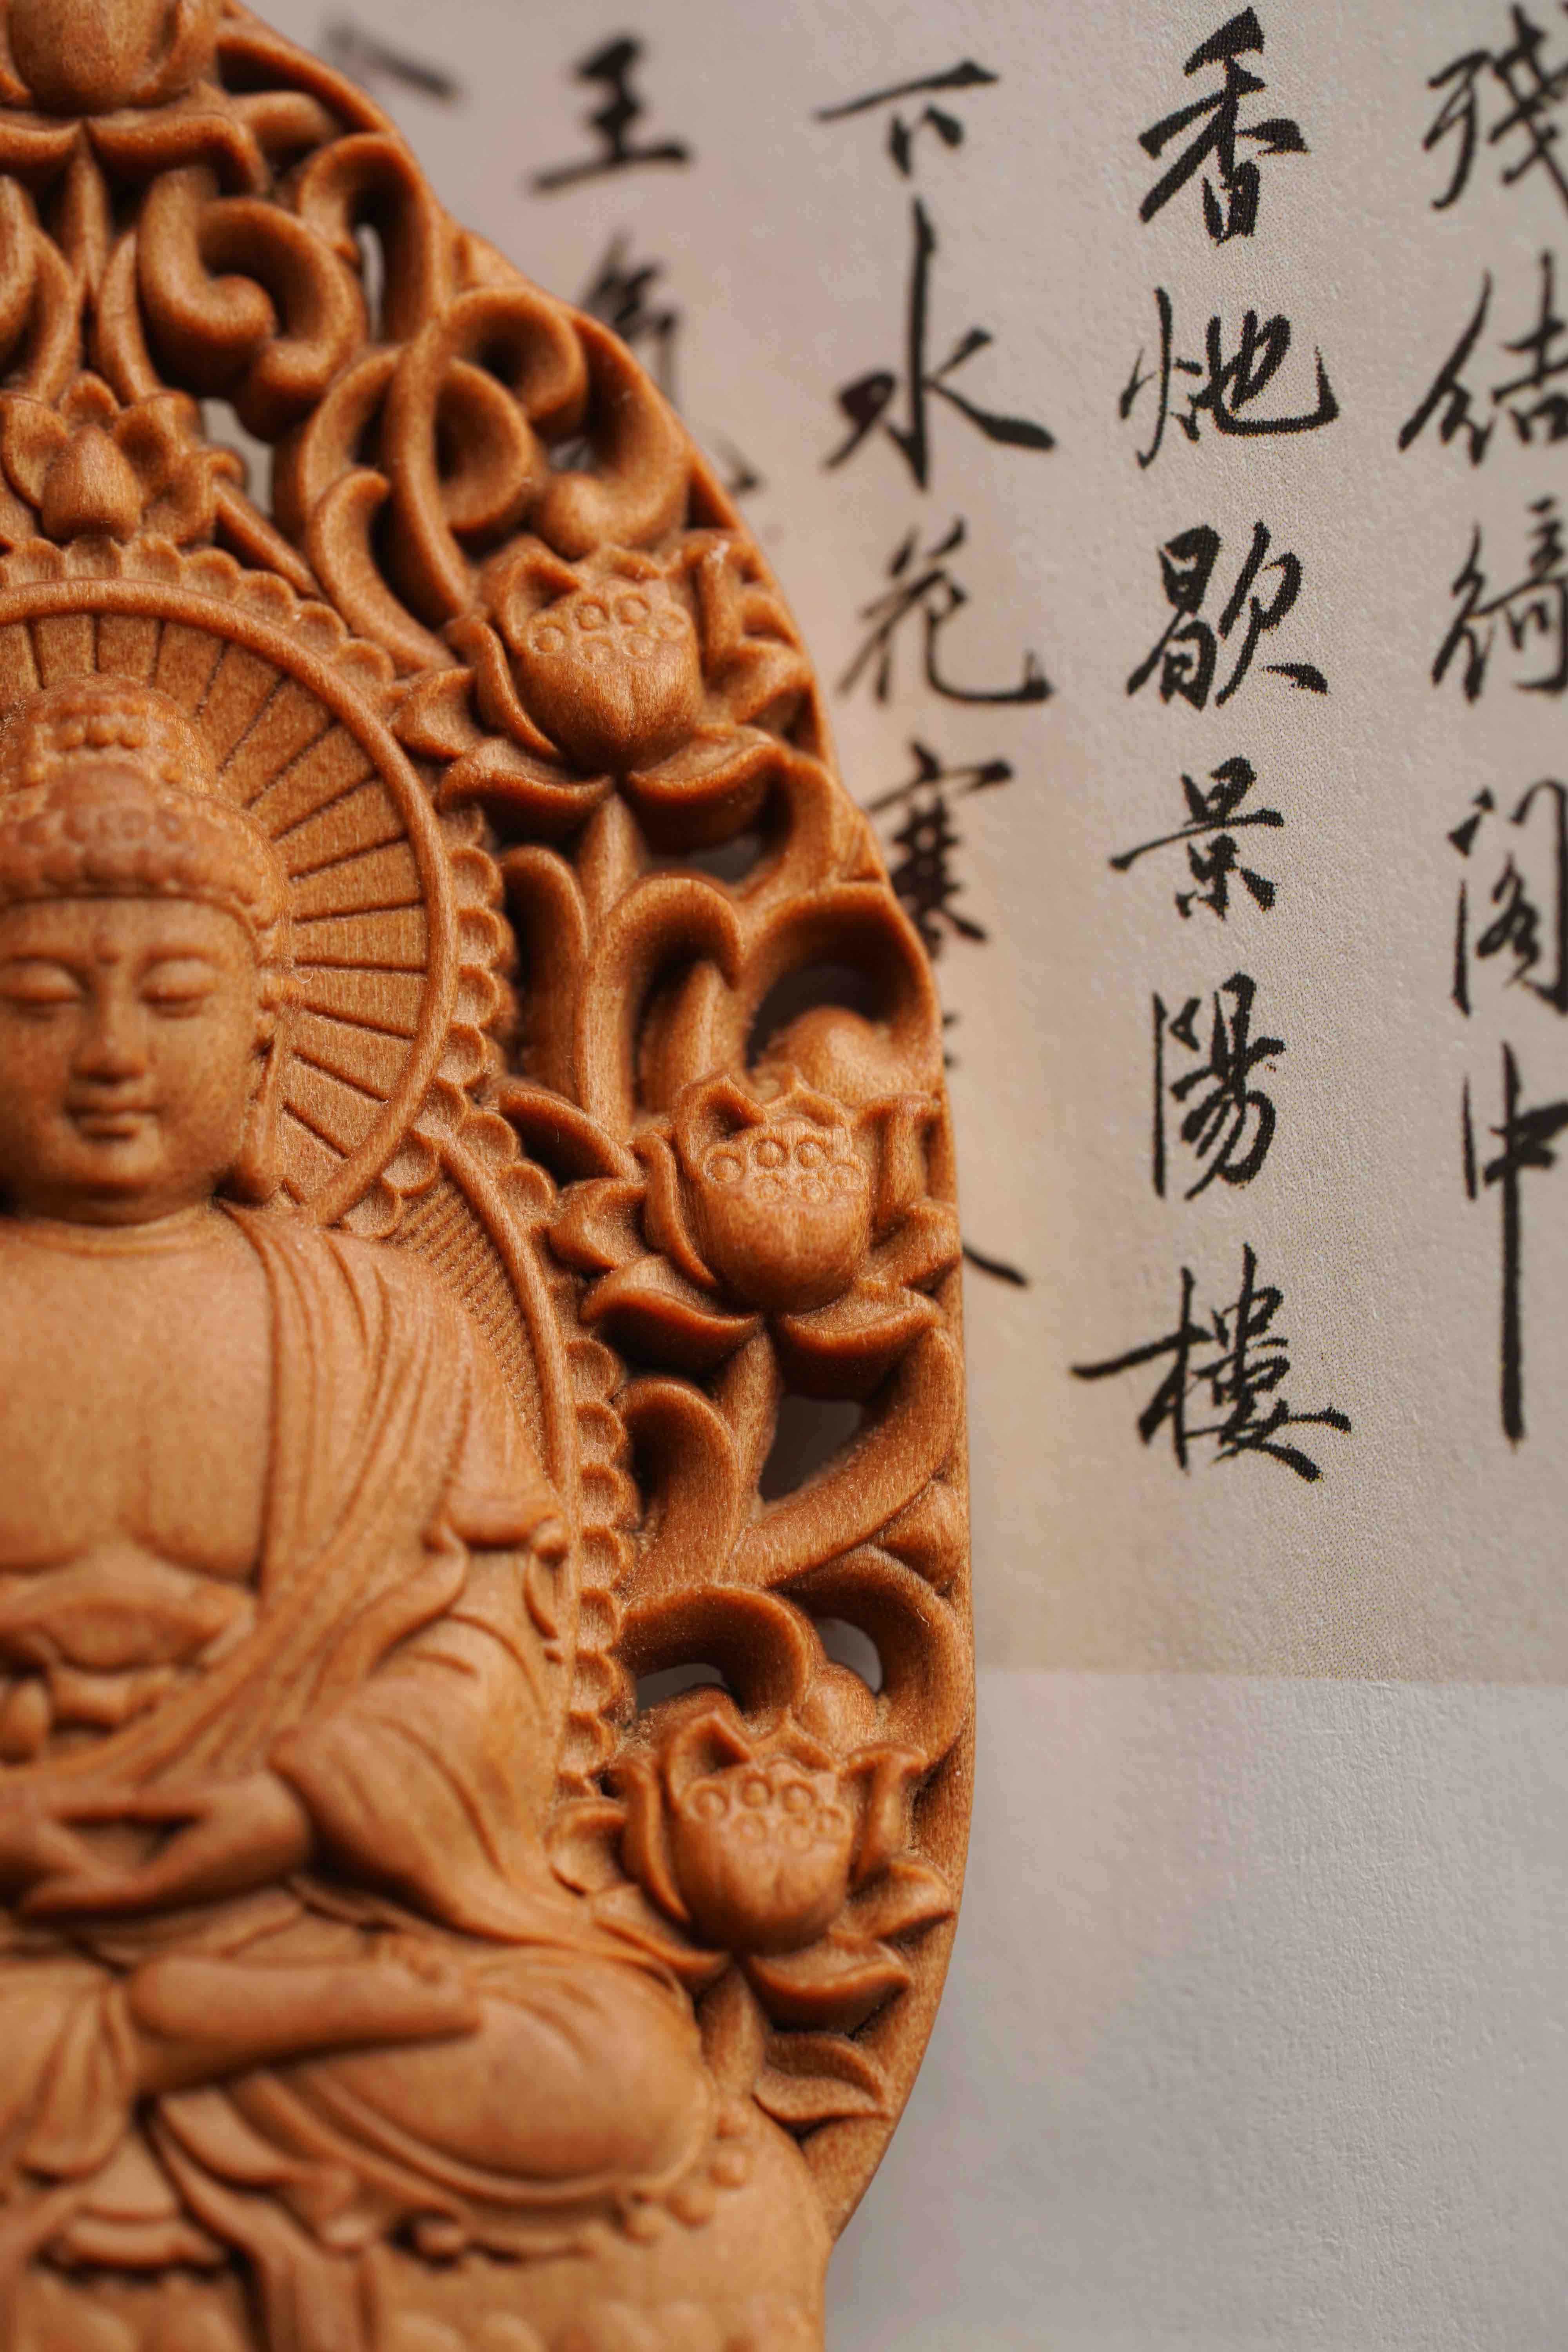 殘結綺閣中
香灺歇景陽樓
下水花寒
王